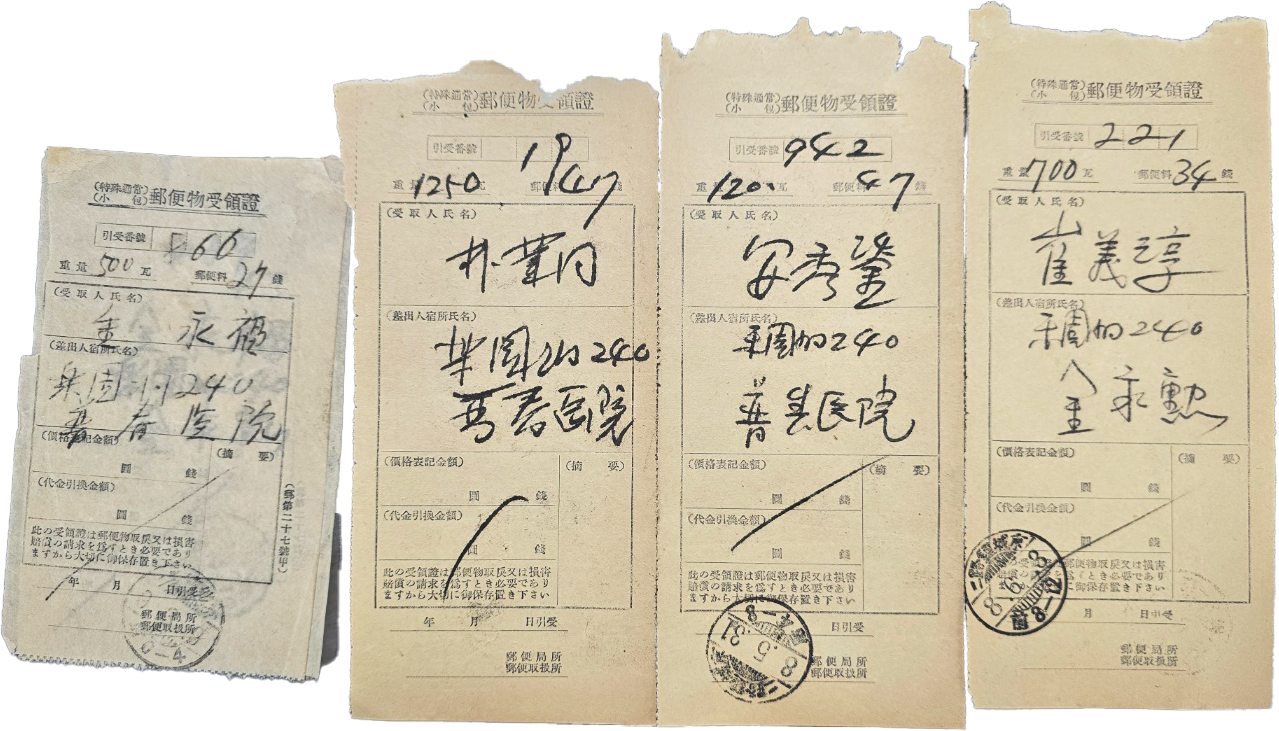 (特殊通常
小　包)郵便物受領證
引受番號 566
重量 500 瓦 郵便料 27 錢
(受取人氏名)
金 永 福
(差出人宿所氏名)
樂園町240
普春医院
(價格表記金額)
圓 錢
(摘 要)
(代金引換金額)
圓 錢
此の受領證は郵便物取戾又は損害
賠償の請求を爲すとき必要であり
ますから大切に御保存置き下さい
年 月 日引受
郵便局所
郵便取扱所
(郵第二十七號甲)
(特殊通常
小　包)郵便物受領證
引受番號 19
重量 1250 瓦 郵便料 47 錢
(受取人氏名)
朴業同
(差出人宿所氏名)
樂園町240
普春医院
(價格表記金額)
圓 錢
(摘 要)
(代金引換金額)
圓 錢
此の受領證は郵便物取戾又は損害
賠償の請求を爲すとき必要であり
ますから大切に御保存置き下さい
年 月 日引受
郵便局所
郵便取扱所
(特殊通常
小　包)郵便物受領證
引受番號 942
重量 120. 瓦 郵便料 47 錢
(受取人氏名)
安秀瑩
(差出人宿所氏名)
樂園町240
普春医院
(價格表記金額)
圓 錢
(摘 要)
(代金引換金額)
圓 錢
此の受領證は郵便物取戾又は損害
賠償の請求を爲すとき必要であり
ますから大切に御保存置き下さい
日引受
郵便局所
郵便取扱所
8.5.31
(特殊通常
小　包)郵便物受領證
引受番號 221
重量 700 瓦 郵便料 34 錢
(受取人氏名)
崔義淳
(差出人宿所氏名)
樂園町240
金永勲
(價格表記金額)
圓 錢
(摘 要)
(代金引換金額)
錢
月 日引受
郵便局所
郵便取扱所